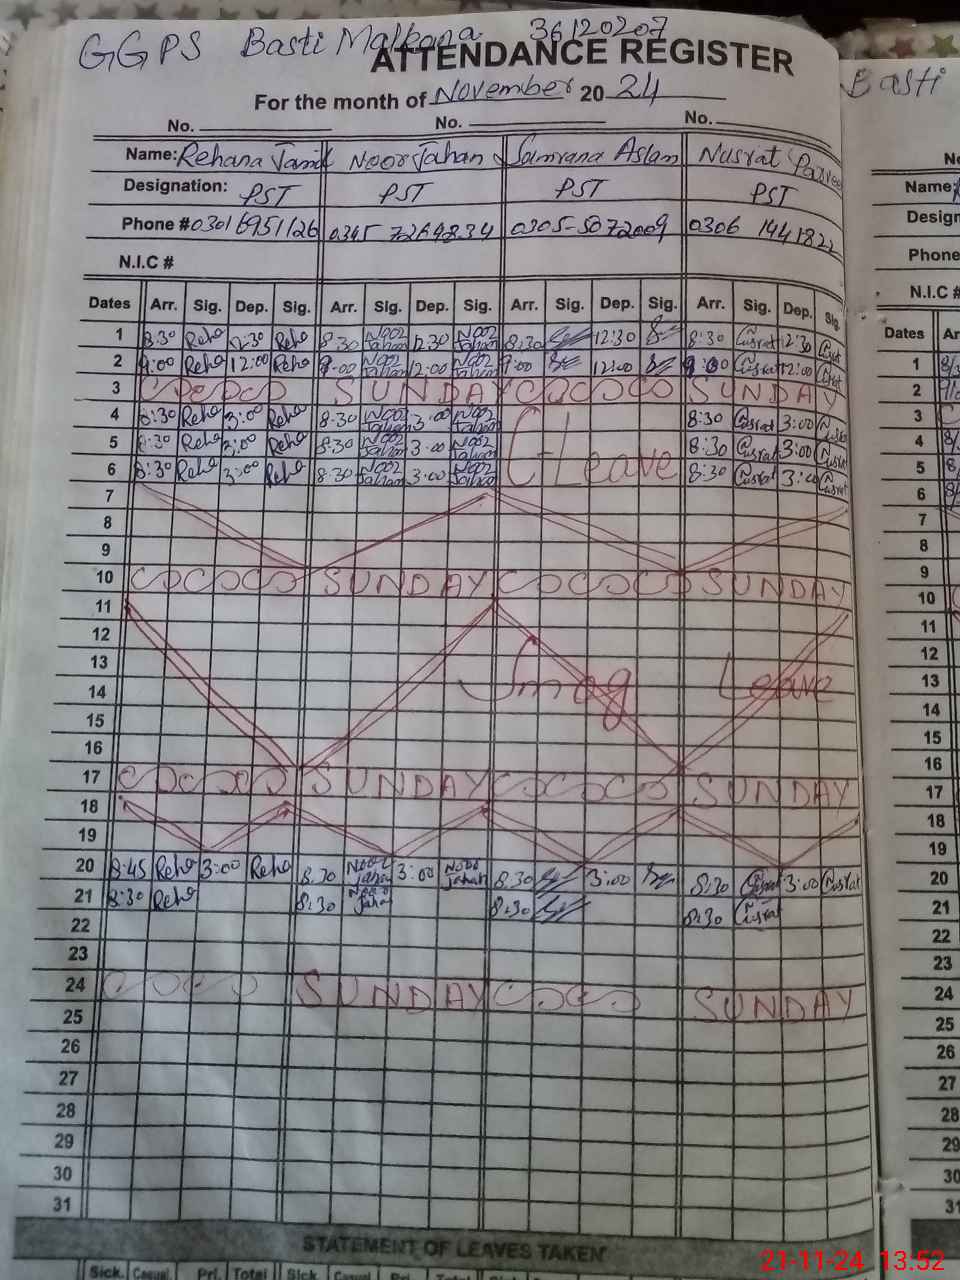 GGPS Basti Malkana 36120207
ATTENDANCE REGISTER
For the month of November 20 24
No. No. No.
Name: Rehana Jamil Noor Jahan Samrana Aslam Nusrat Parveen
Designation: PST PST PST PST
Phone # 03016951126 0345 7264834 0305-5072009 0306 1441822
N.I.C #
Dates Arr. Sig. Dep. Sig. Arr. Sig. Dep. Sig. Arr. Sig. Dep. Sig. Arr. Sig. Dep. Sig.
1 8:30 Reha 12:30 Reha 8:30 Noor Jahan 12:30 Noor Jahan 8:30 12:30 8:30 Nusrat 12:30 Nusrat
2 9:00 Reha 12:00 Reha 9:00 Noor Jahan 12:00 Noor Jahan 9:00 12:00 9:00 Nusrat 12:00 Nusrat
3 SUNDAY SUNDAY
4 8:30 Reha 3:00 Reha 8:30 Noor Jahan 3:00 Noor Jahan 8:30 Nusrat 3:00 Nusrat
5 8:30 Reha 3:00 Reha 8:30 Noor Jahan 3:00 Noor Jahan C-Leave 8:30 Nusrat 3:00 Nusrat
6 8:30 Reha 3:00 Reha 8:30 Noor Jahan 3:00 Noor Jahan 8:30 Nusrat 3:00 Nusrat
7
8
9
10 SUNDAY SUNDAY
11
12
13
14 Smog Leave
15
16
17 SUNDAY SUNDAY
18
19
20 8:45 Reha 3:00 Reha 8:30 Noor Jahan 3:00 Noor Jahan 8:30 3:00 8:30 Nusrat 3:00 Nusrat
21 8:30 Reha 8:30 Noor Jaha 8:30 8:30 Nusrat
22
23
24 SUNDAY SUNDAY
25
26
27
28
29
30
31
STATEMENT OF LEAVES TAKEN
Sick. Casual. Pri. Total Sick. Casual. Pri. Total Sick.
Basti
No
Name:
Design
Phone
N.I.C #
Dates Ar
1
2
3
4
5
6
7
8
9
10
11
12
13
14
15
16
17
18
19
20
21
22
23
24
25
26
27
28
29
30
31
21-11-24 13:52